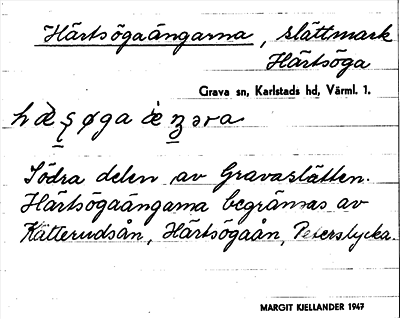 Härtsögaängarna, slättmark
Härtsöga
Grava sn, Karlstads hd, Värml. 1.
Södra delen av Gravaslätten.
Härtsögaängarna begränsas av
Kätterudsån, Härtsögaån, Peterslycka.
MARGIT KJELLANDER 1947